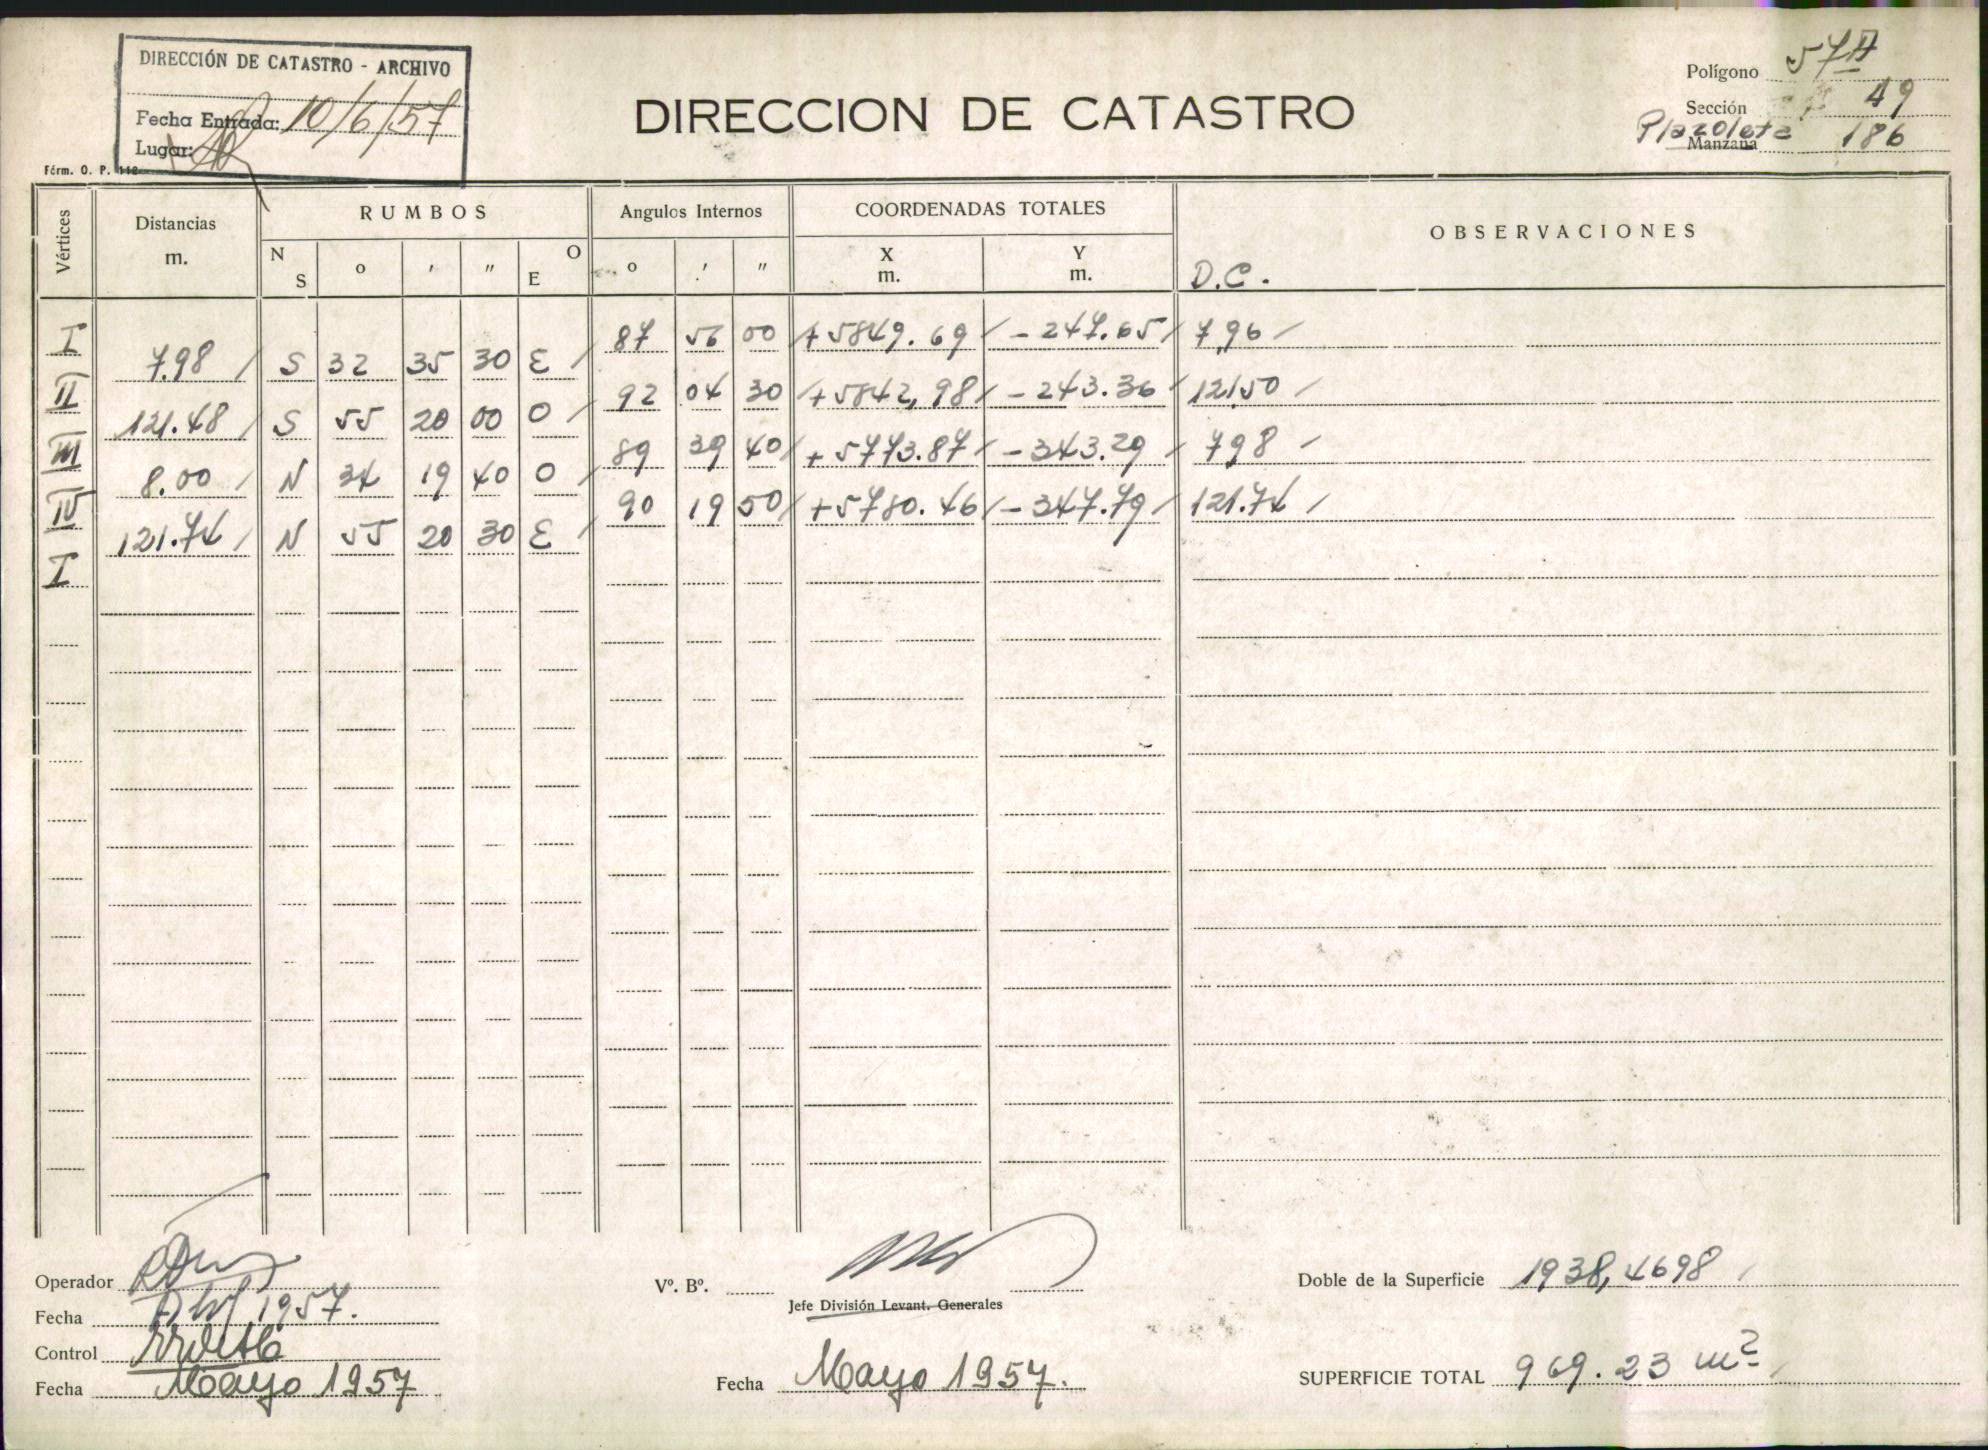 DIRECCIÓN DE CATASTRO - ARCHIVO
Fecha Entrada: 10/6/57
Lugar:
Fórm. O. P. 112
DIRECCION DE CATASTRO
Polígono 57A
Sección 49
Plazoleta Manzana 186
Vértices Distancias m. RUMBOS Angulos Internos COORDENADAS TOTALES OBSERVACIONES
N S o ' " O E o ' " X m. Y m. D.C.
I 87 56 00 +5849.69 -247.65 7,96
7.98 S 32 35 30 E
II 92 04 30 +5842,98 -243.36 121,50
121.48 S 55 20 00 O
III 89 39 40 +5773.87 -343.29 798
8.00 N 34 19 40 O
IV 90 19 50 +5780.46 -347.79 121.74
121.74 N 55 20 30 E
I
Operador
Fecha Abril 1957.
Control
Fecha Mayo 1957
Vº. Bº.
Jefe División Levant. Generales
Fecha Mayo 1957.
Doble de la Superficie 1938,4698
SUPERFICIE TOTAL 969.23 m²